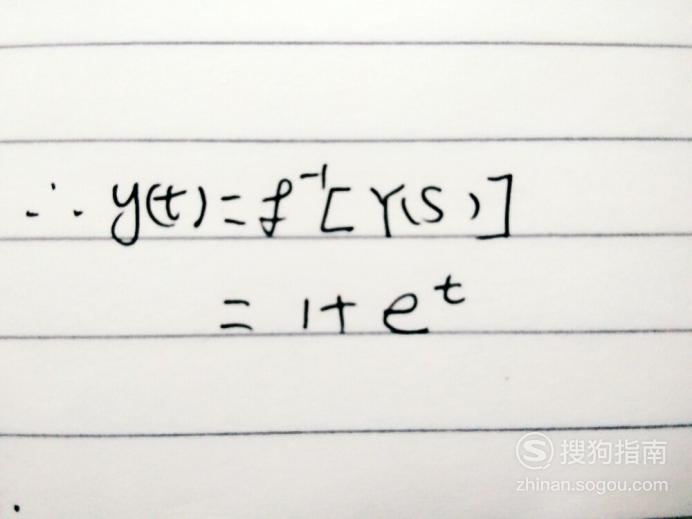 ∴ y(t) = f⁻¹[Y(S)]
= 1 + eᵗ
S 搜狗指南
zhinan.sogou.com